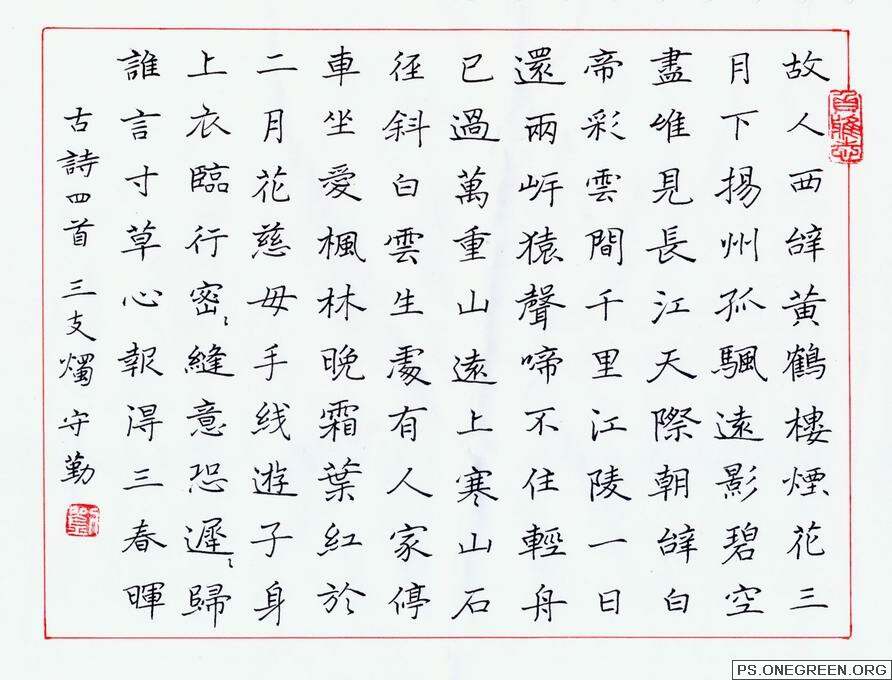 故人西辭黃鶴樓煙花三
月下揚州孤颿遠影碧空
盡唯見長江天際朝辭白
帝彩雲間千里江陵一日
還兩岸猿聲啼不住輕舟
已過萬重山遠上寒山石
径斜白雲生處有人家停
車坐愛楓林晚霜葉紅於
二月花慈母手线遊子身
上衣臨行密〻縫意恐遲〻歸
誰言寸草心報得三春暉
古詩四首 三支燭 守勤
PS.ONEGREEN.ORG